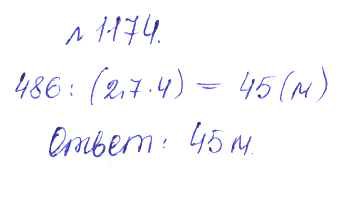 № 1174.
486 : (2,7 · 4) = 45 (м)
Ответ: 45 м.